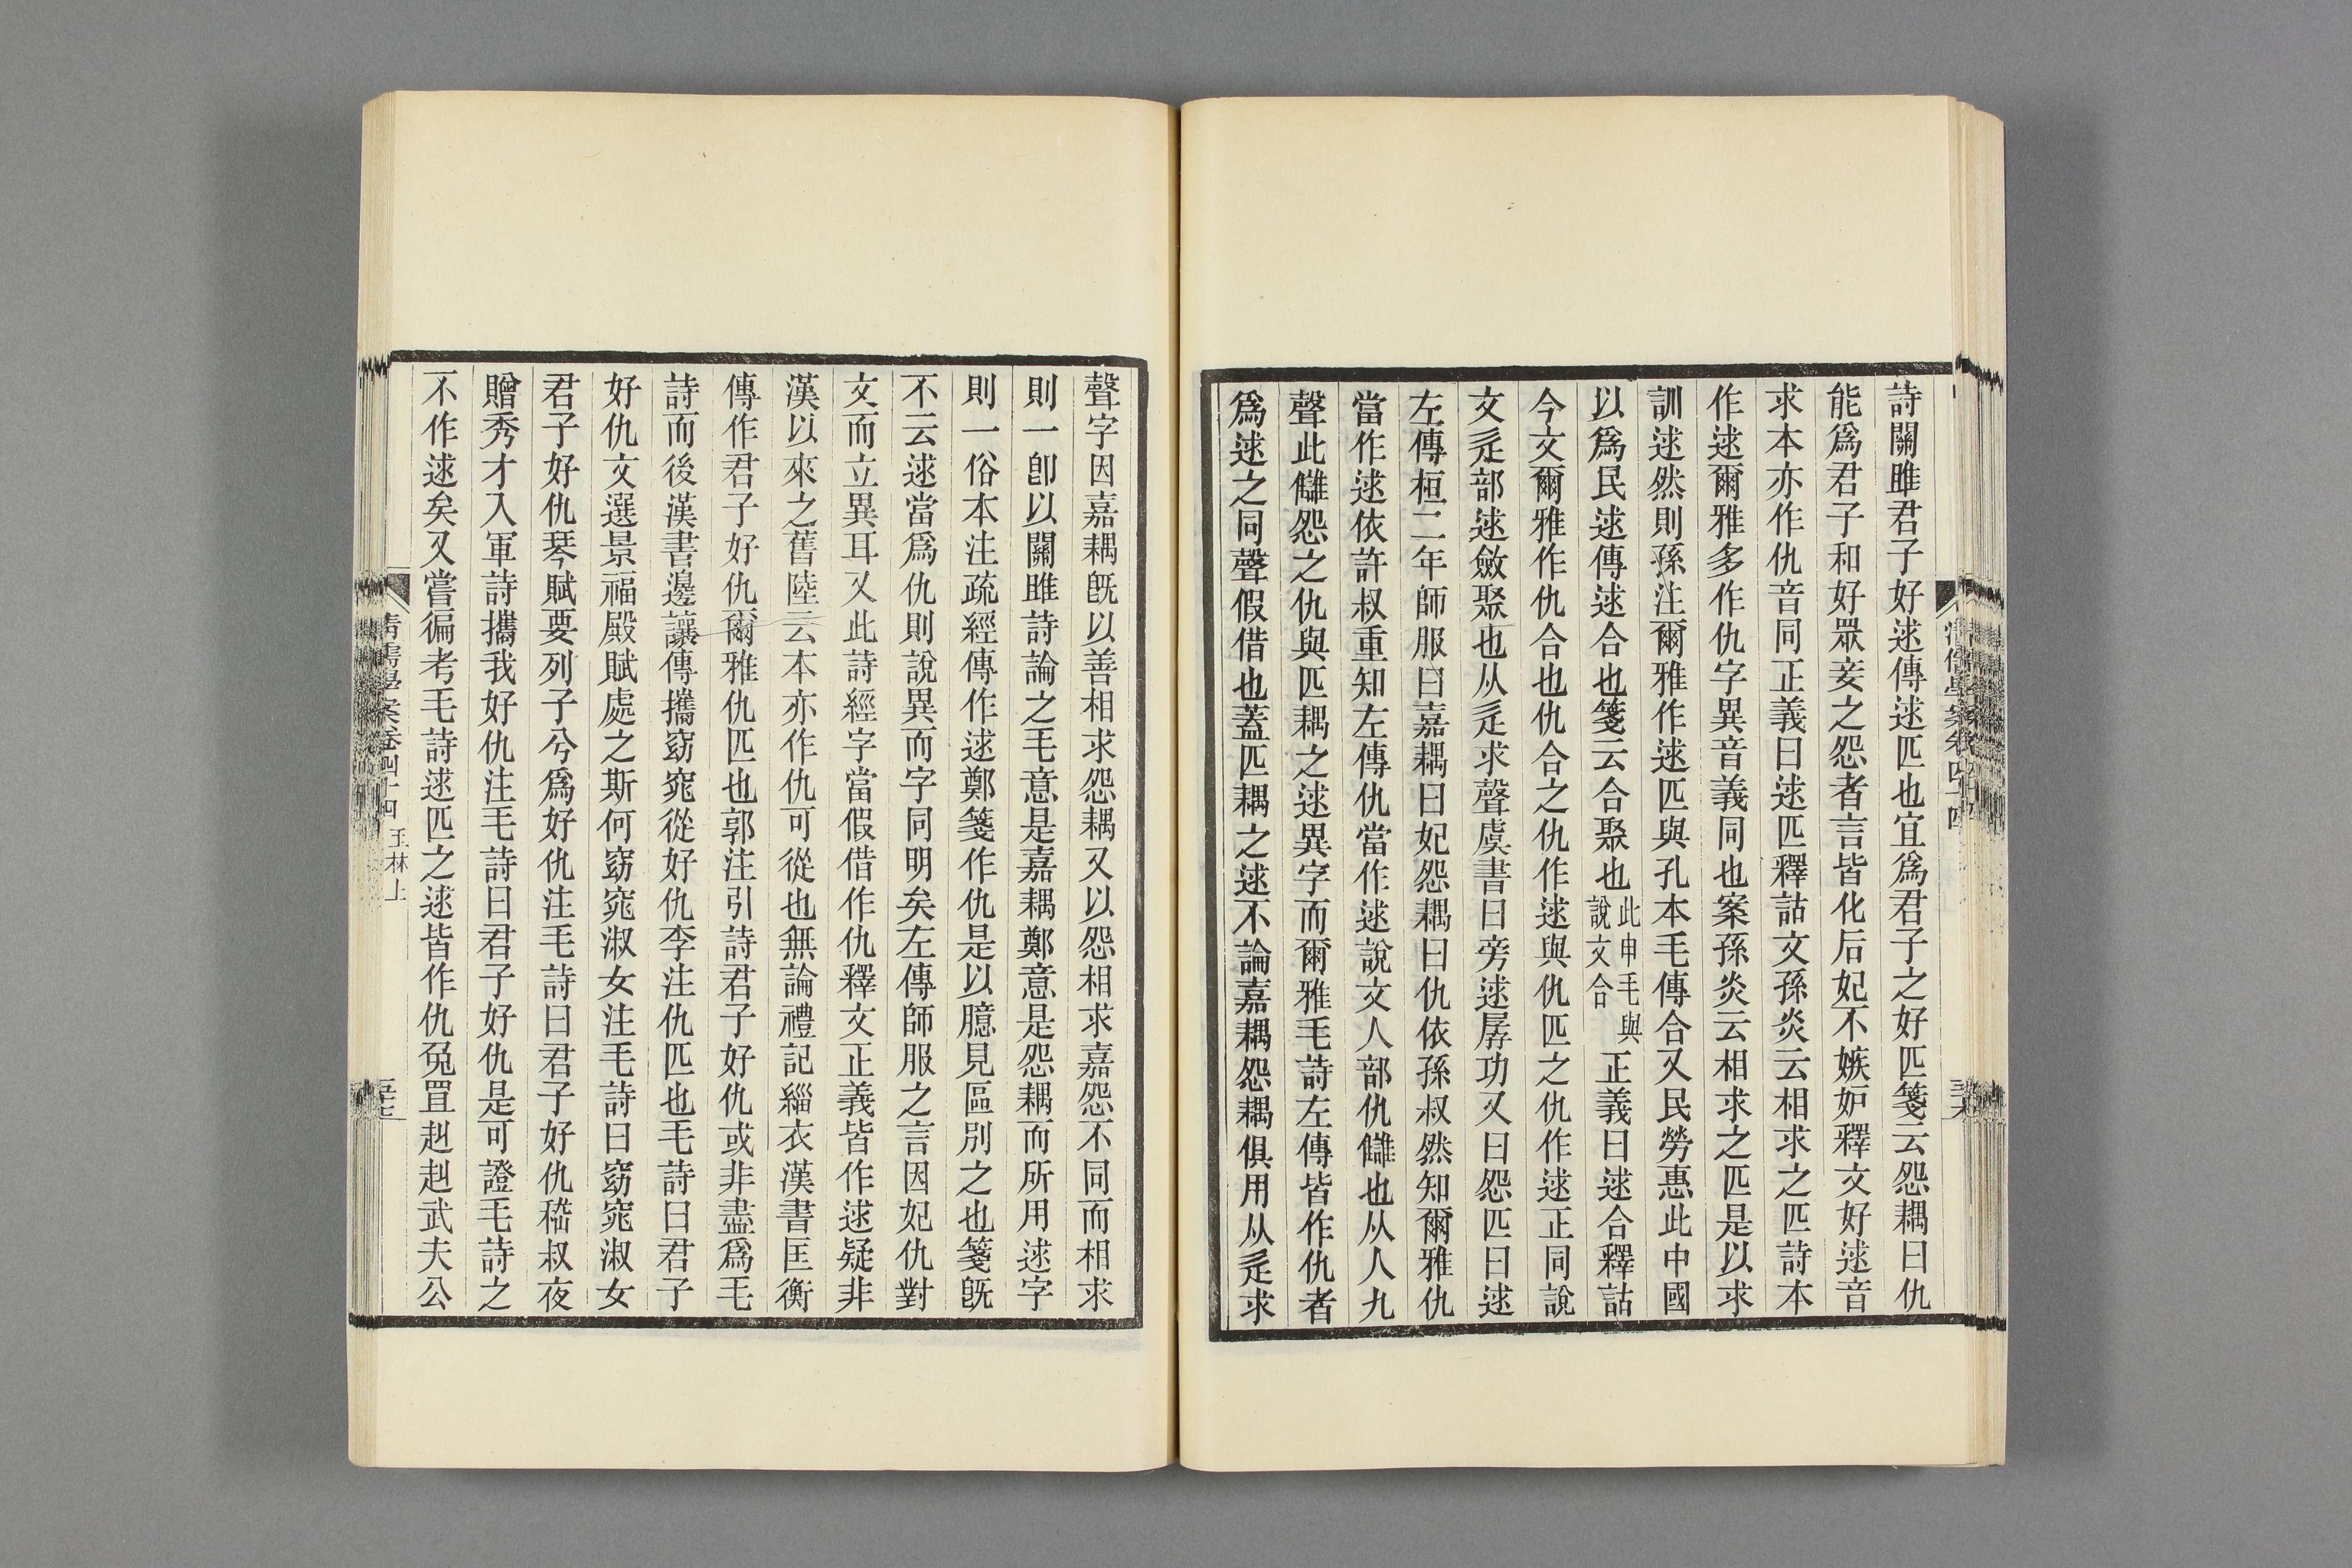 詩關雎君子好逑傳逑匹也宜爲君子之好匹箋云怨耦曰仇
能爲君子和好眾妾之怨者言皆化后妃不嫉妒釋文好逑音
求本亦作仇音同正義曰逑匹釋詁文孫炎云相求之匹詩本
作逑爾雅多作仇字異音義同也案孫炎云相求之匹是以求
訓逑然則孫注爾雅作逑匹與孔本毛傳合又民勞惠此中國
以爲民逑傳逑合也箋云合聚也此申毛與說文合正義曰逑合釋詁
今文爾雅作仇合也仇合之仇作逑與仇匹之仇作逑正同說
文辵部逑斂聚也从辵求聲虞書曰旁逑孱功又曰怨匹曰逑
左傳桓二年師服曰嘉耦曰妃怨耦曰仇依孫叔然知爾雅仇
當作逑依許叔重知左傳仇當作逑說文人部仇讎也从人九
聲此讎怨之仇與匹耦之逑異字而爾雅毛詩左傳皆作仇者
爲逑之同聲假借也蓋匹耦之逑不論嘉耦怨耦俱用从辵求
聲字因嘉耦旣以善相求怨耦又以怨相求嘉怨不同而相求
則一卽以關雎詩論之毛意是嘉耦鄭意是怨耦而所用逑字
則一俗本注疏經傳作逑鄭箋作仇是以臆見區別之也箋旣
不云逑當爲仇則說異而字同明矣左傳師服之言因妃仇對
文而立異耳又此詩經字當假借作仇釋文正義皆作逑疑非
漢以來之舊陸云本亦作仇可從也無論禮記緇衣漢書匡衡
傳作君子好仇爾雅仇匹也郭注引詩君子好仇或非盡爲毛
詩而後漢書邊讓傳攜窈窕從好仇李注仇匹也毛詩曰君子
好仇文選景福殿賦處之斯何窈窕淑女注毛詩曰窈窕淑女
君子好仇琴賦要列子兮爲好仇注毛詩曰君子好仇嵇叔夜
贈秀才入軍詩攜我好仇注毛詩曰君子好仇是可證毛詩之
不作逑矣又嘗徧考毛詩逑匹之逑皆作仇兔罝赳赳武夫公
清儒學案卷四十四 玉林上